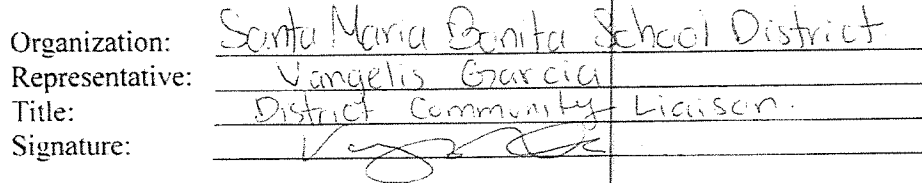 Organization: Santa Maria Bonita School District
Representative: Vangelis Garcia
Title: District Community Liaison.
Signature: